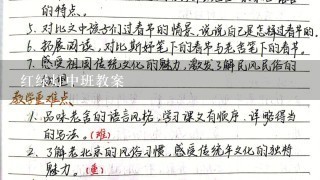 的特点。
5. 对比文中孩子们过春节的情景,说说自己是怎样过春节的。
6. 拓展阅读,对比斯妤笔下的春节与老舍笔下的春节。
7. 感受祖国传统文化的魅力,激发了解民风民俗的
红绿灯中班教案
教学重难点
1. 品味老舍的语言风格,学习课文有顺序、详略得当
的写法。(难)
2. 了解老北京的风俗习惯,感受传统年文化的独特
魅力。(重)